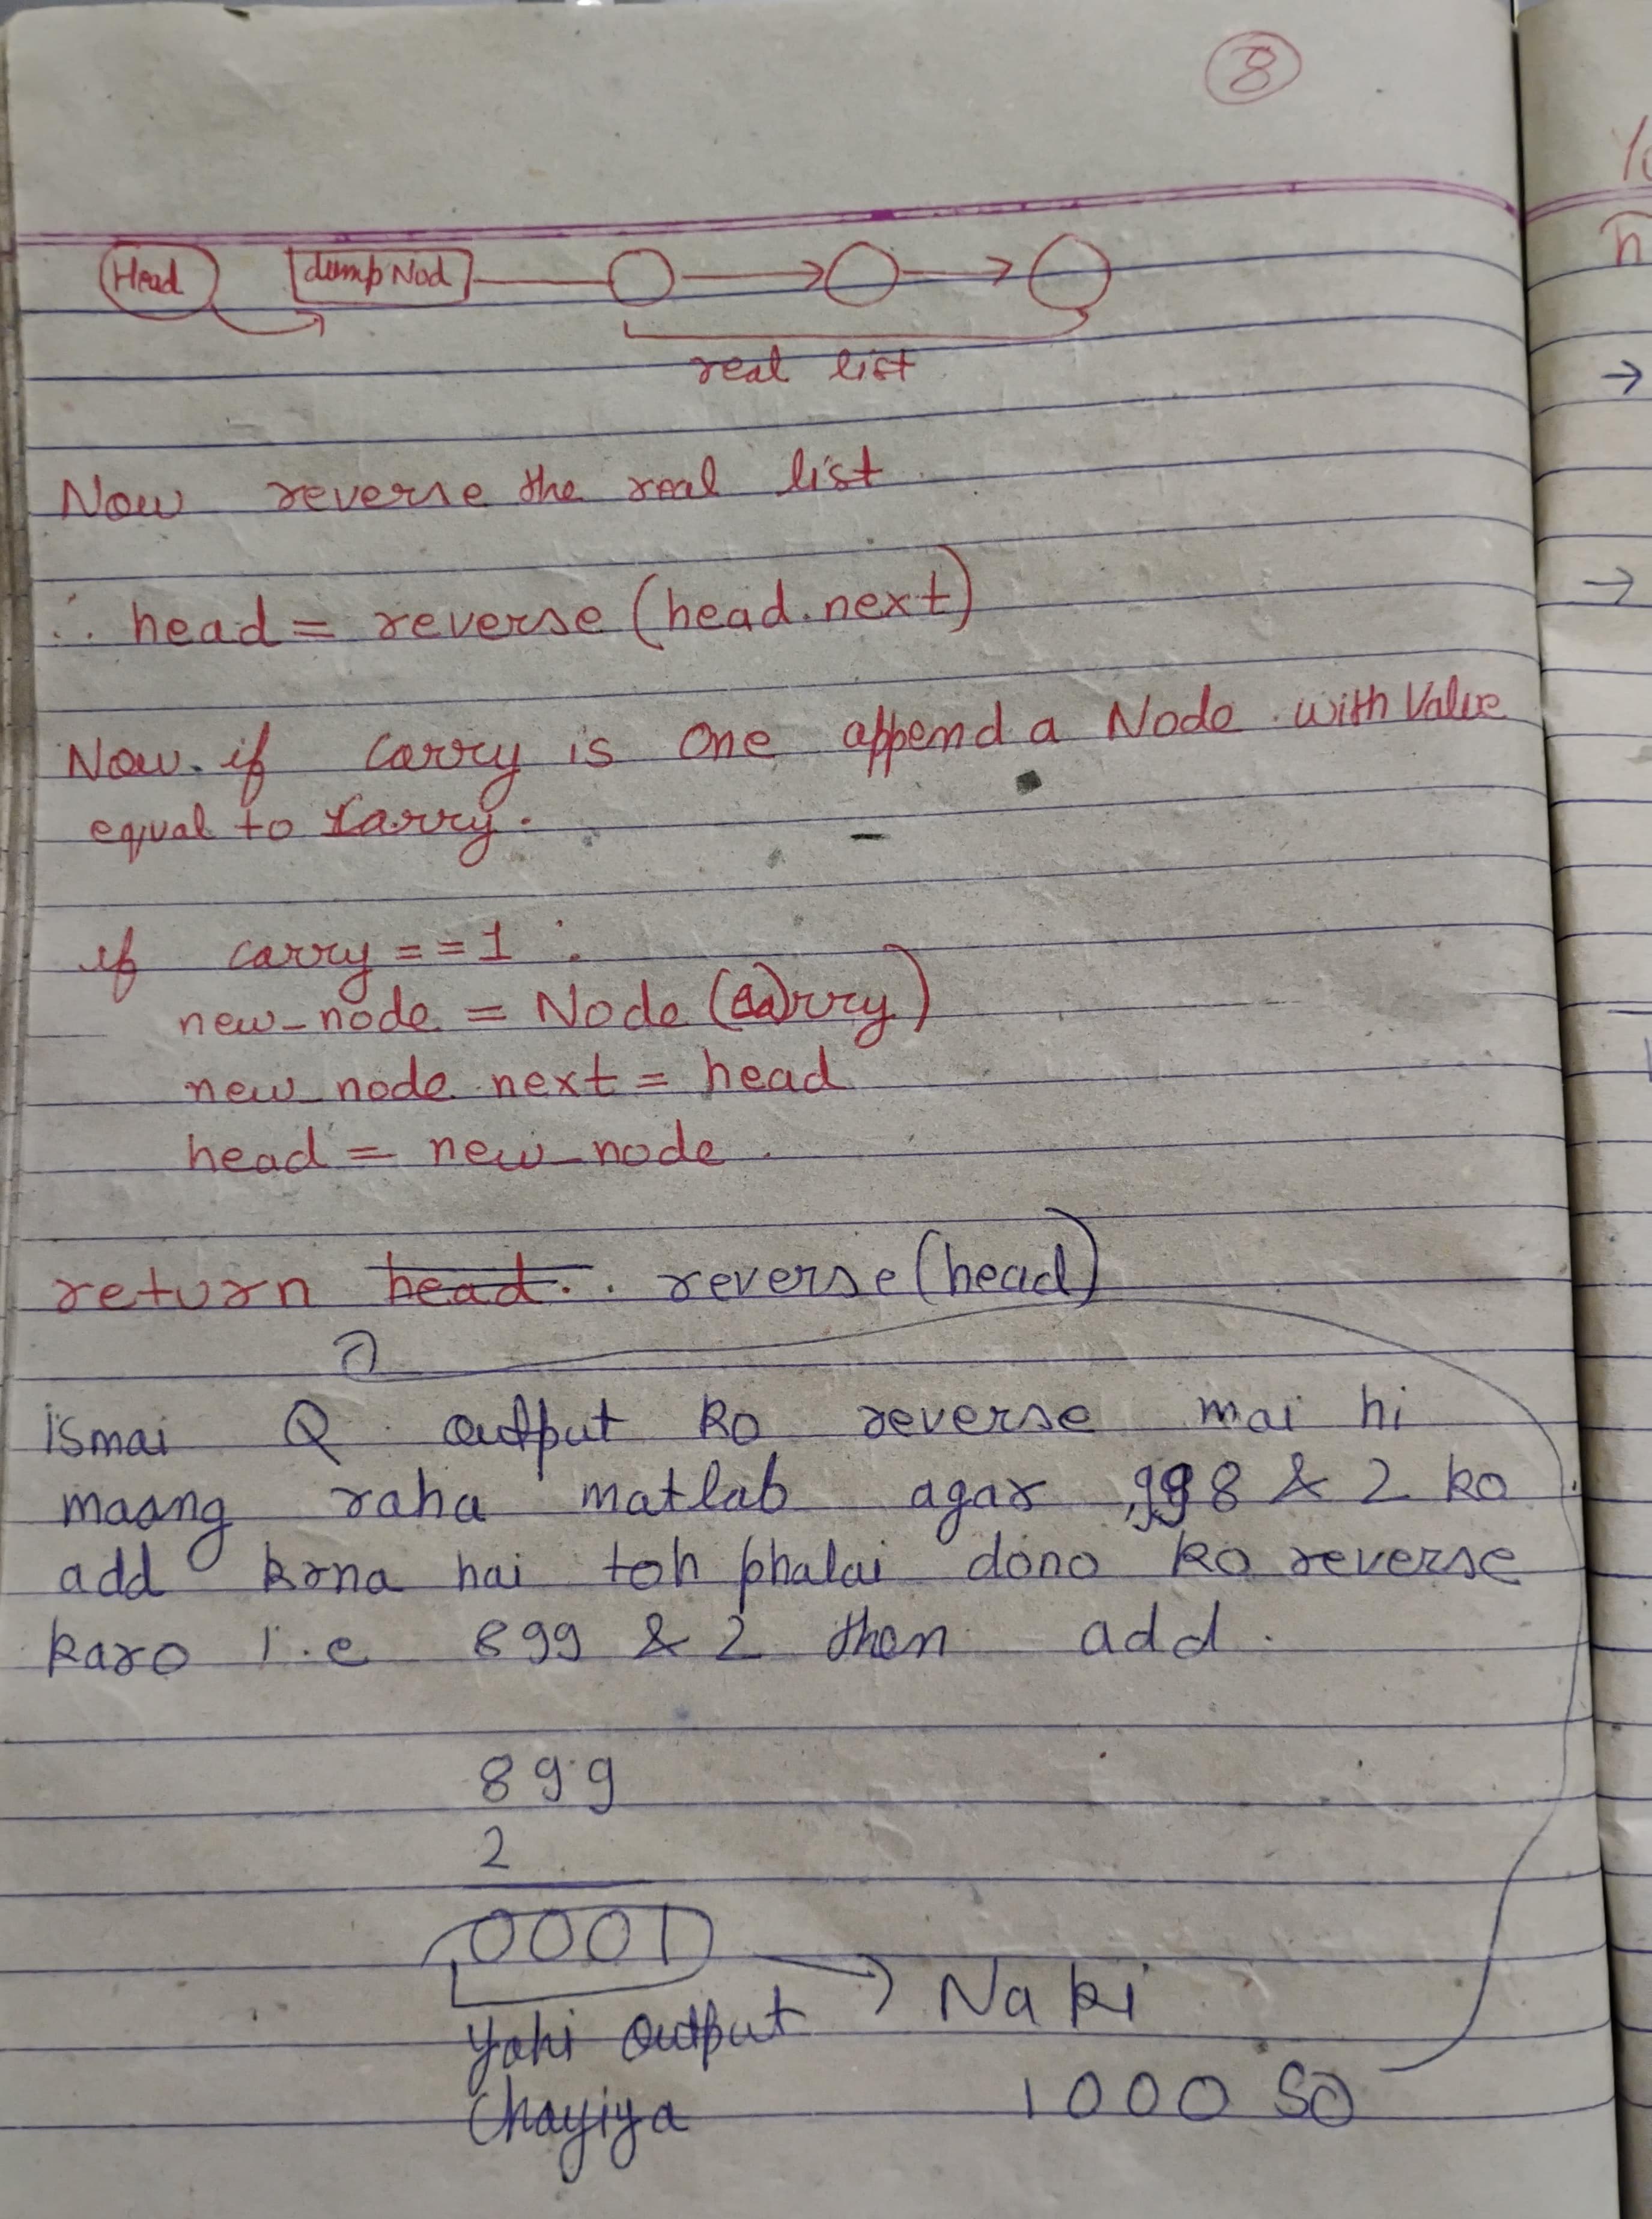 8
Head dumpNod
real list
Now reverse the real list
∴ head = reverse (head.next)
Now if carry is one append a Node with Value
equal to carry.
if carry == 1 :
new_node = Node (carry)
new_node next = head
head = new_node
return head. reverse (head)
ismai Q output ko reverse mai hi
maang raha matlab agar 998 & 2 ko
add krna hai toh phalai dono ko reverse
karo i.e 899 & 2 then add.
899
2
0001
Yahi output Na ki
Chayiya 1000 SO